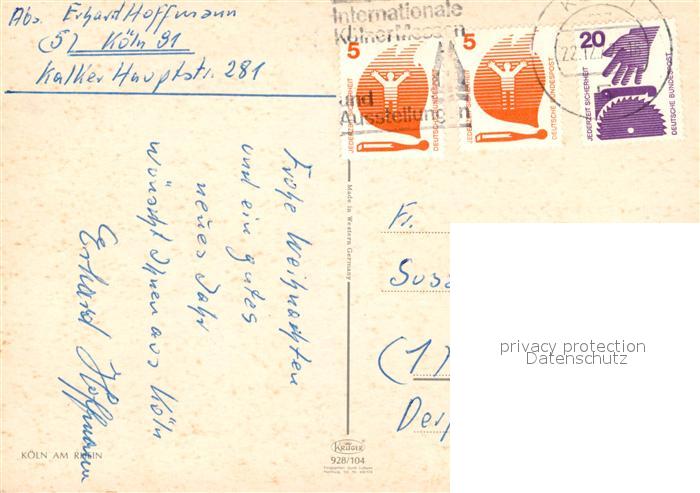 Abs. Erhart Hoffmann
(5) Köln 91
Kalker Hauptstr. 281
Internationale
Kölner Messen
und
Ausstellungen
22.12.
5
JEDERZEIT SICHERHEIT
DEUTSCHE BUNDESPOST
5
JEDERZEIT SICHERHEIT
DEUTSCHE BUNDESPOST
20
JEDERZEIT SICHERHEIT
DEUTSCHE BUNDESPOST
Frohe Weihnachten
und ein gutes
neues Jahr
wünscht Ihnen aus Köln
Erhard Hoffmann
Made in Western Germany
Fr.
(1)
privacy protection
Datenschutz
KÖLN AM RHEIN
KRÜGER
928/104